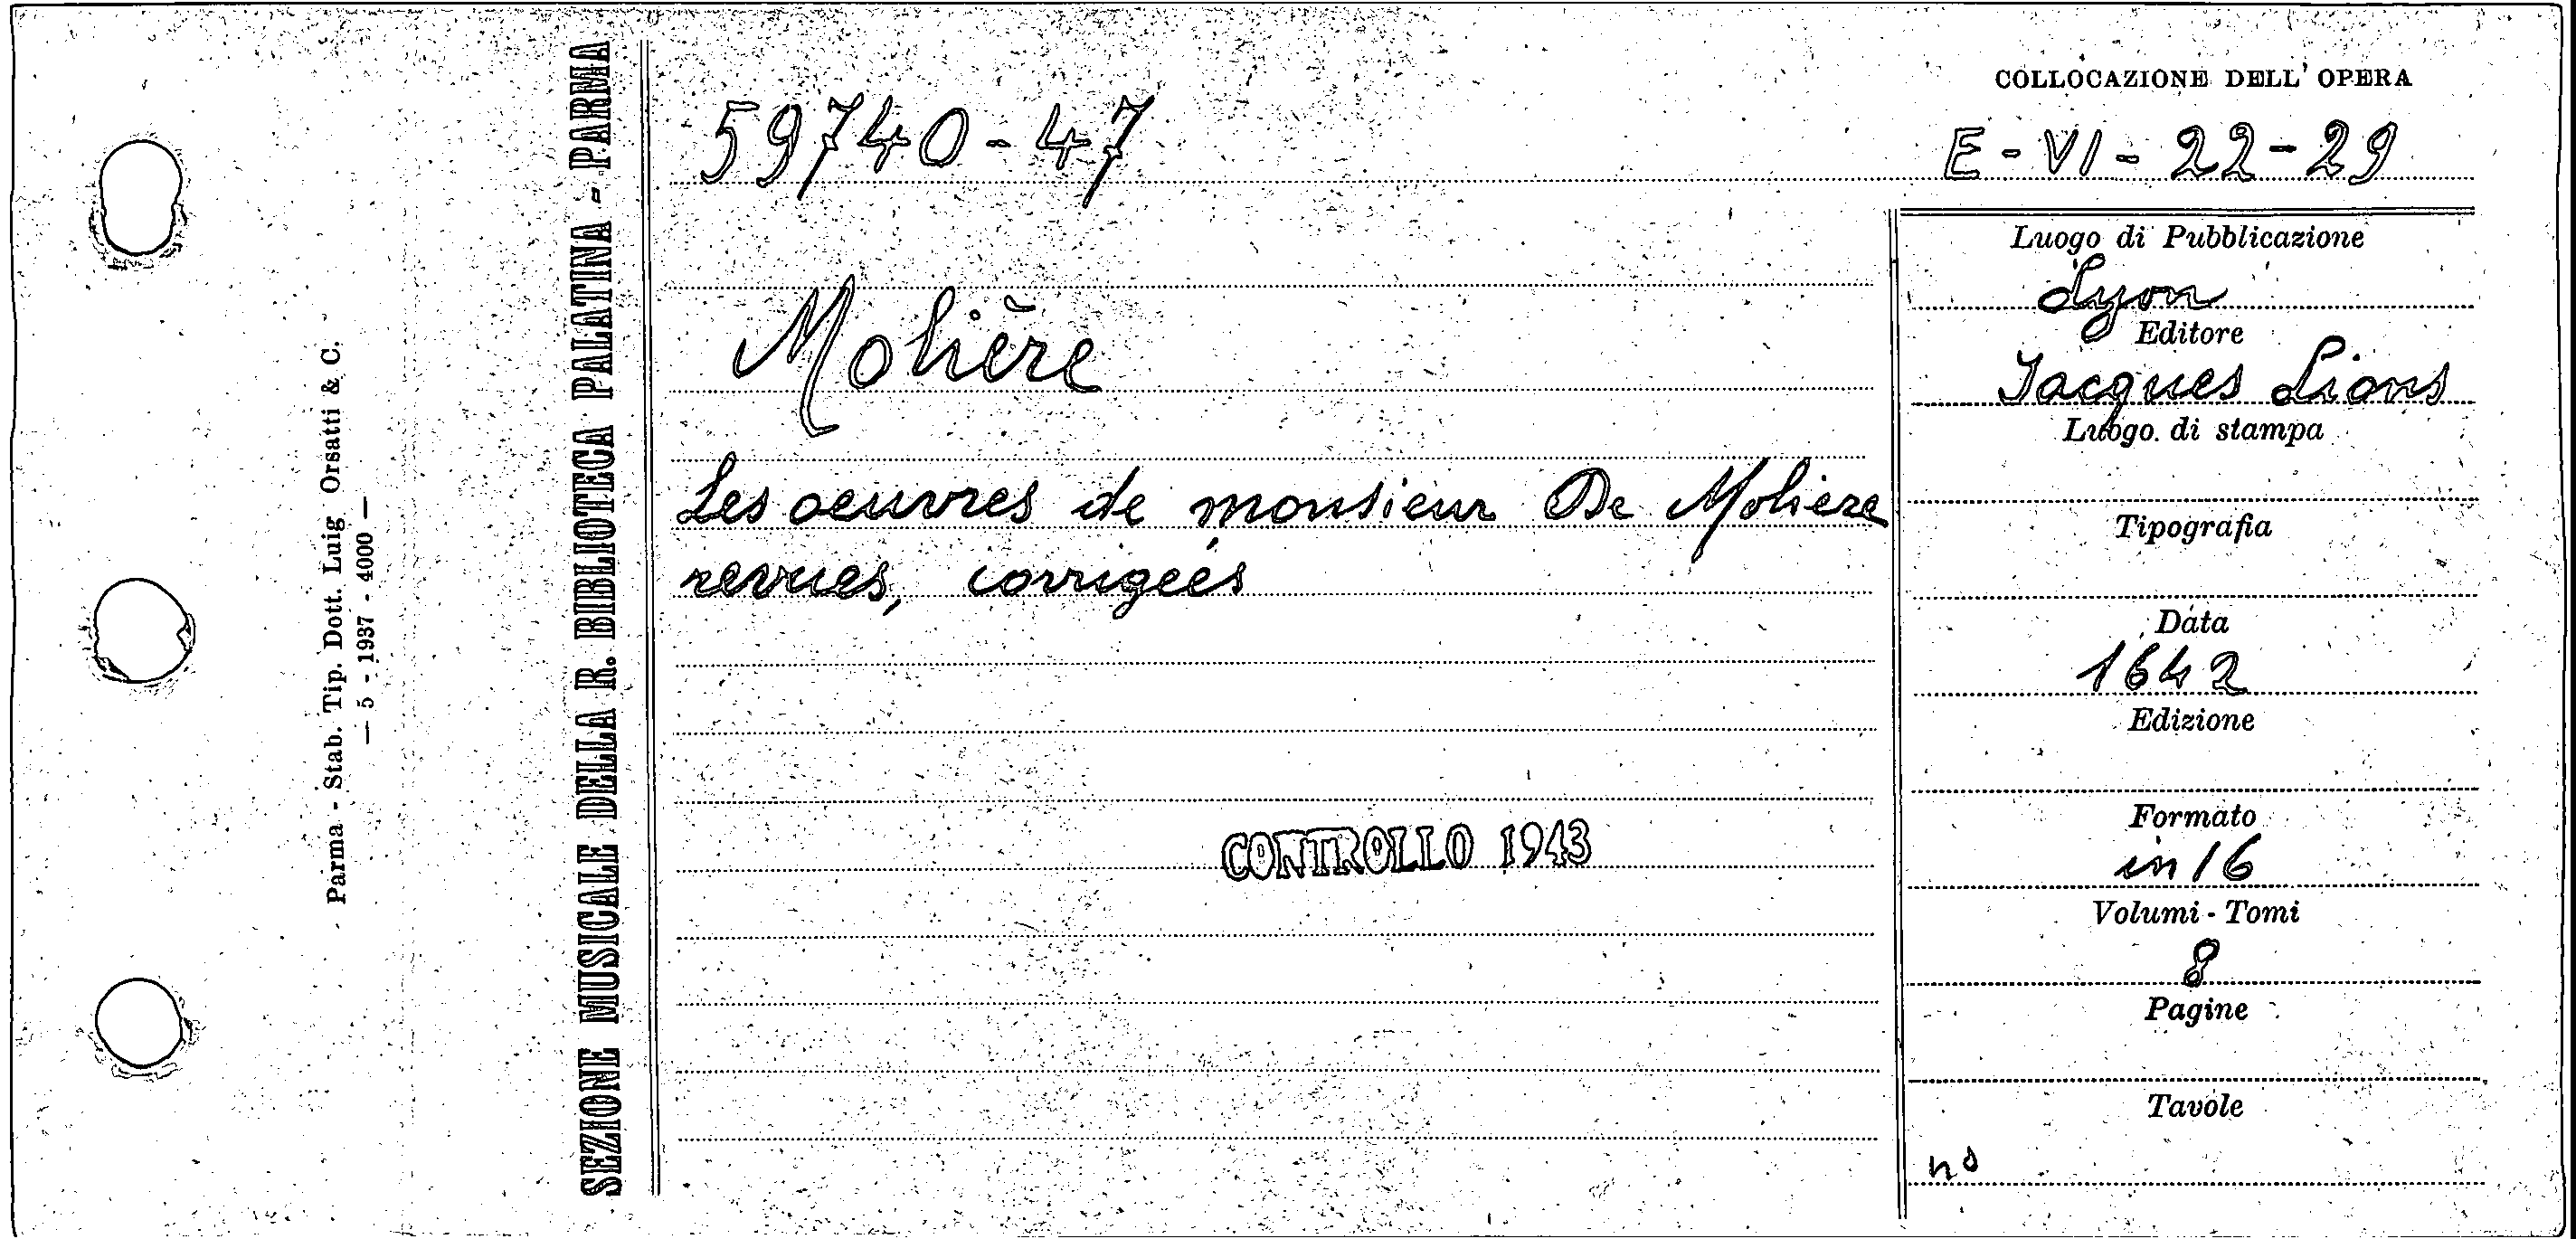 Parma - Stab. Tip. Dott. Luig Orsatti & C.
— 5 - 1937 - 4000 —
SEZIONE MUSICALE DELLA R. BIBLIOTECA PALATINA - PARMA
59740-47
COLLOCAZIONE DELL' OPERA
E - VI - 22 - 29
Molière
Les oeuvres de monsieur De Moliere
revues, corrigées
CONTROLLO 1943
Luogo di Pubblicazione
Lyon
Editore
Jacques Lions
Luogo di stampa
Tipografia
Data
1642
Edizione
Formato
in 16
Volumi - Tomi
8
Pagine
Tavole